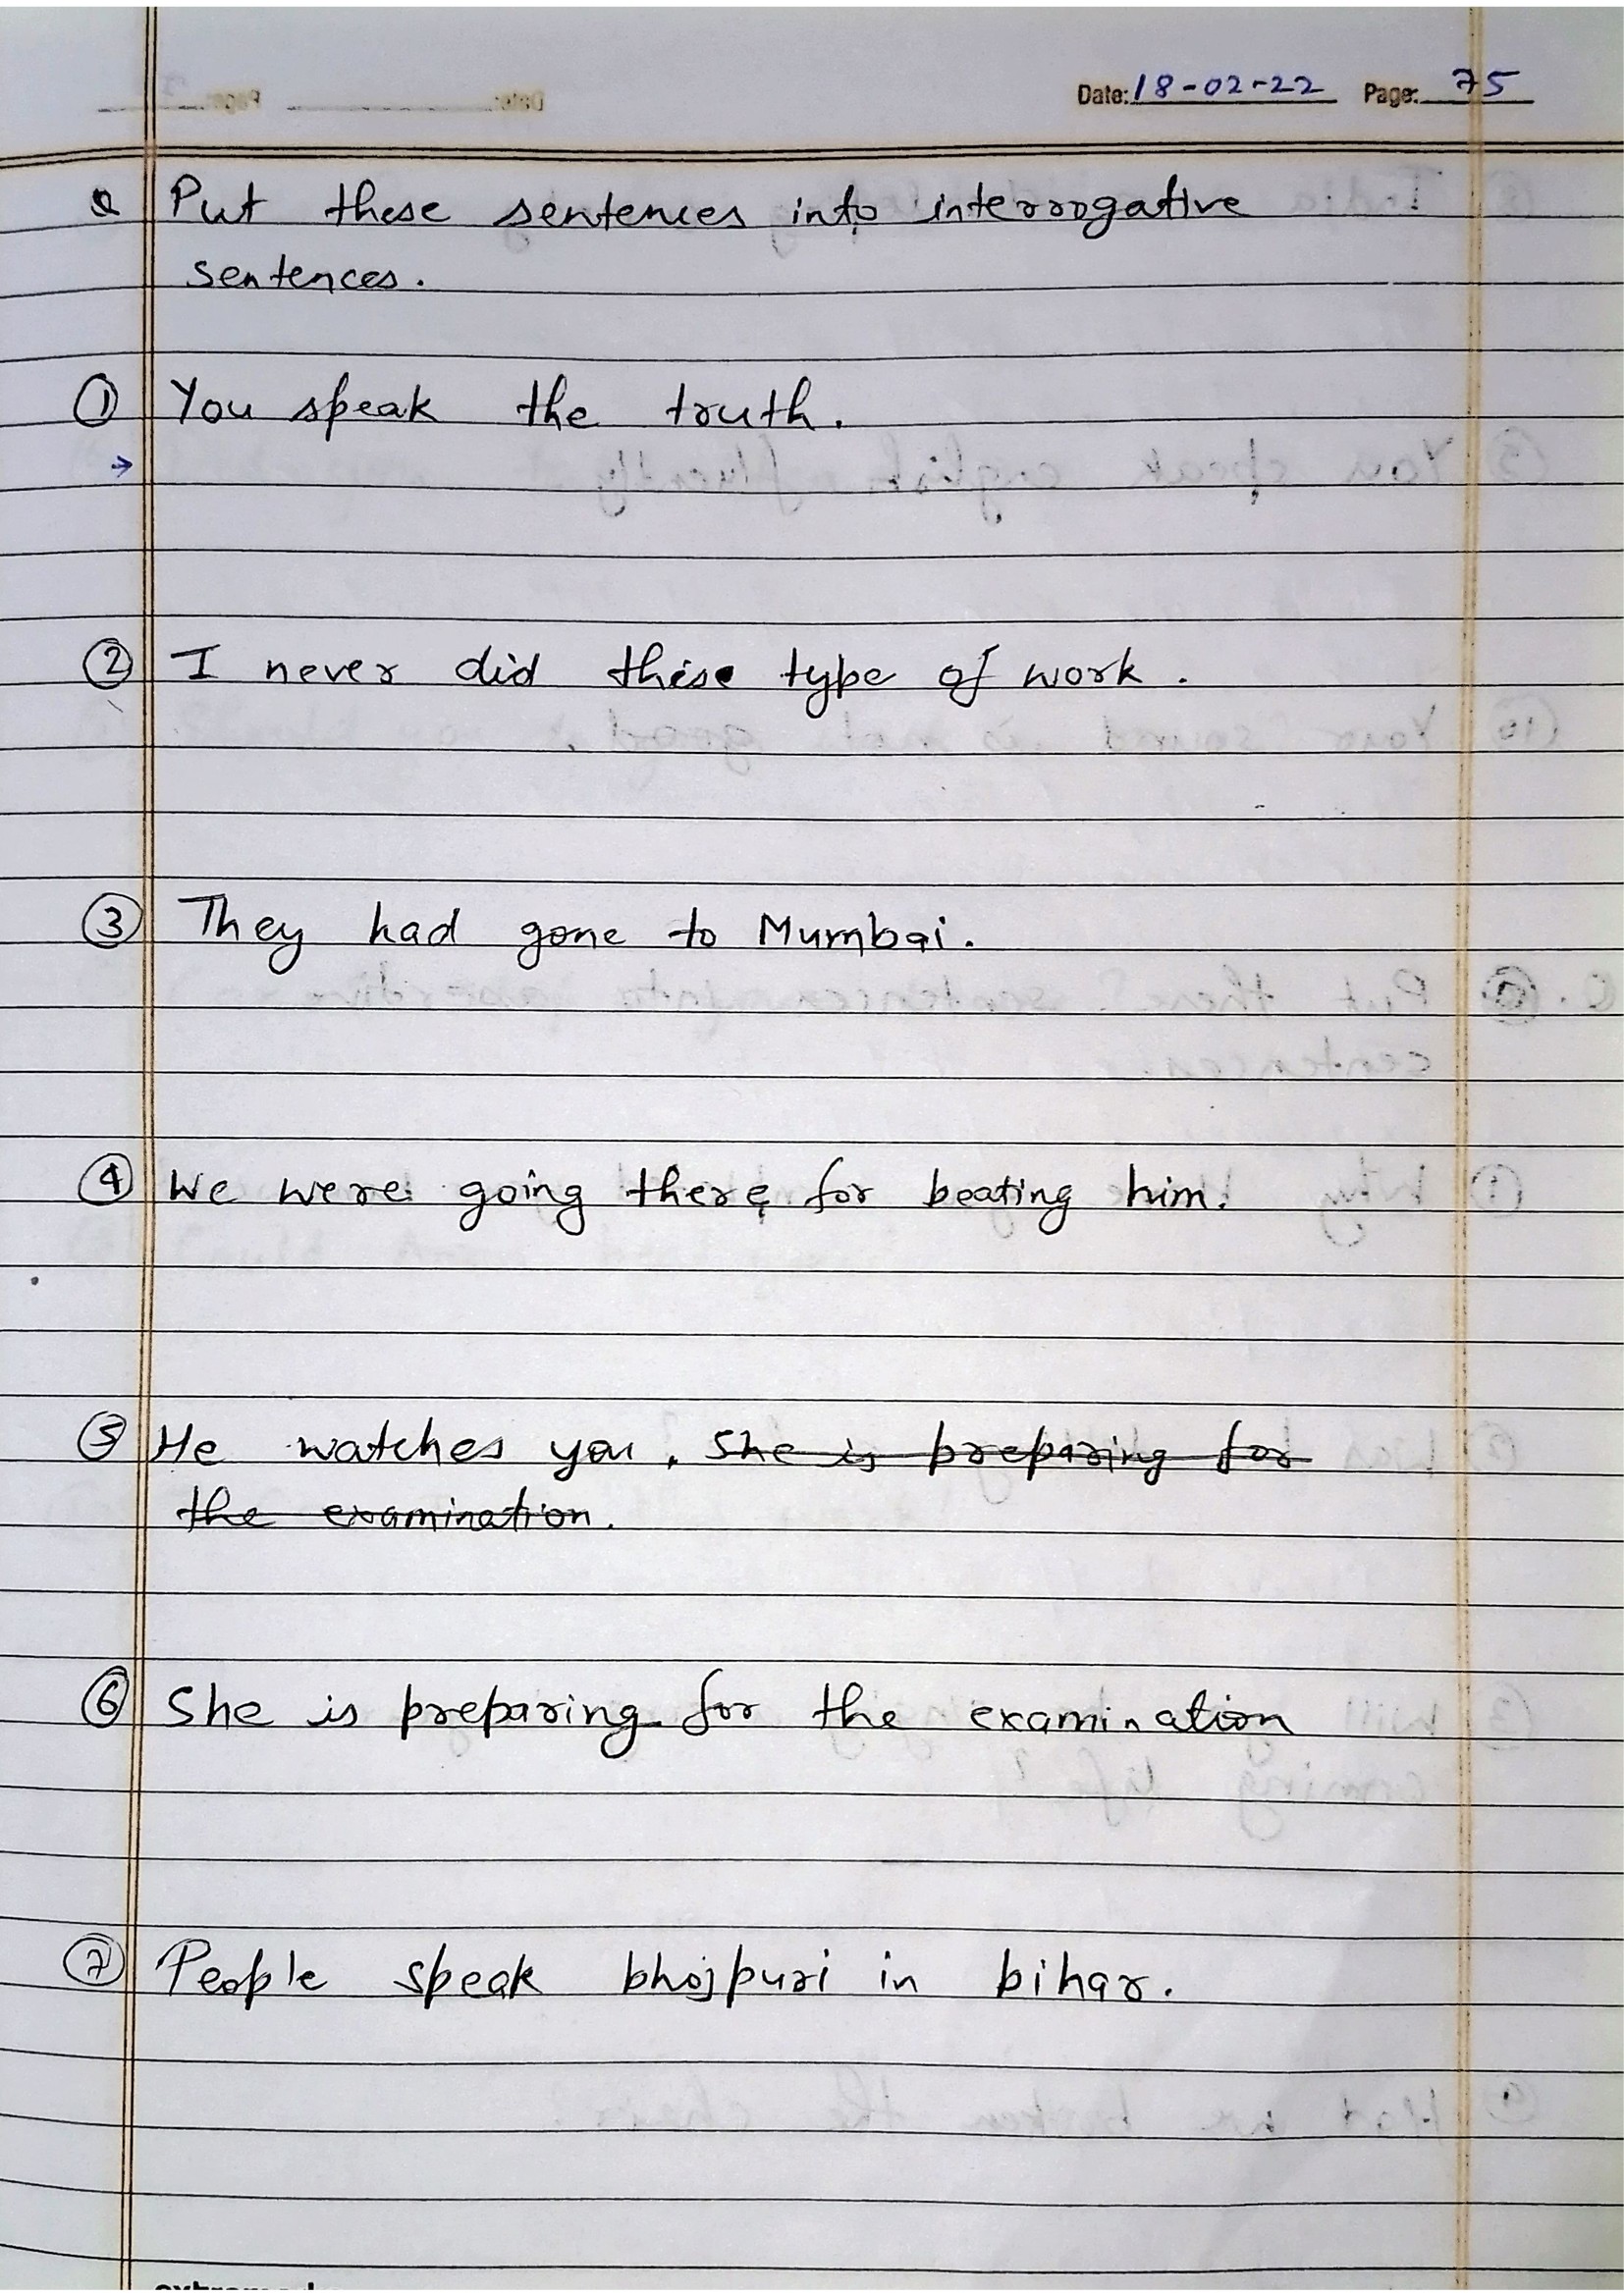 Date: 18-02-22 Page: 75
Q Put these sentences into interrogative
sentences.
① You speak the truth.
→
② I never did these type of work.
③ They had gone to Mumbai.
④ We were going there for beating him.
⑤ He watches you. She is preparing for
the examination.
⑥ She is preparing for the examination
⑦ People speak bhojpuri in bihar.